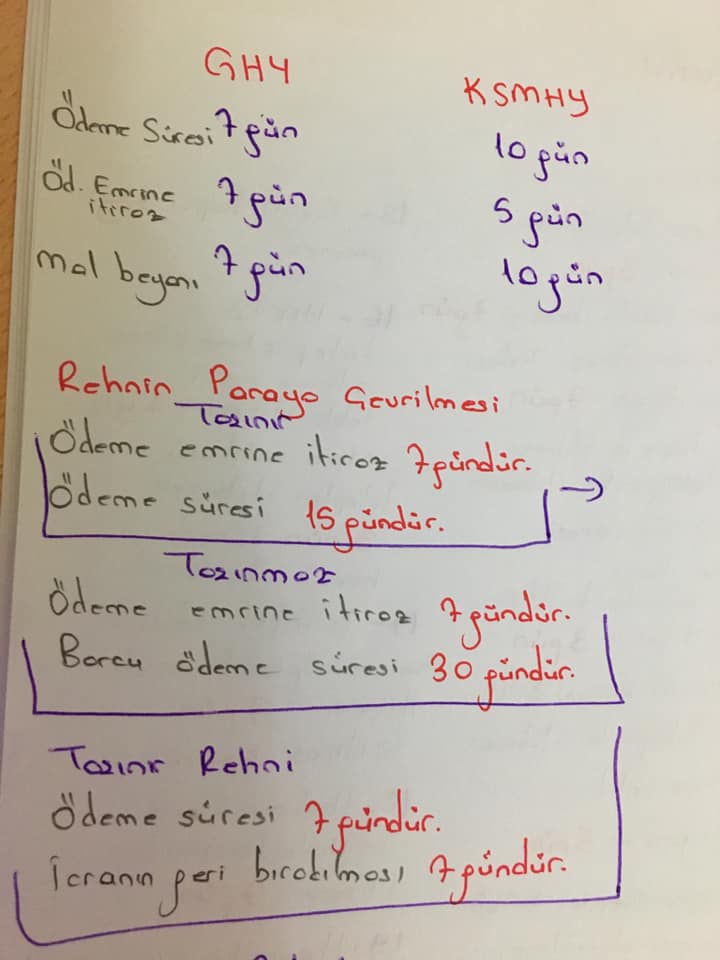 GHY KSMHY
Ödeme Süresi 7 gün 10 gün
Öd. Emrine 7 gün 5 gün
itiraz
Mal beyanı 7 gün 10 gün
Rehnin Paraya Çevrilmesi
Taşınır
Ödeme emrine itiraz 7 gündür.
Ödeme süresi 15 gündür.
Taşınmaz
Ödeme emrine itiraz 7 gündür.
Borcu ödeme süresi 30 gündür.
Taşınır Rehni
Ödeme süresi 7 gündür.
İcranın geri bırakılması 7 gündür.